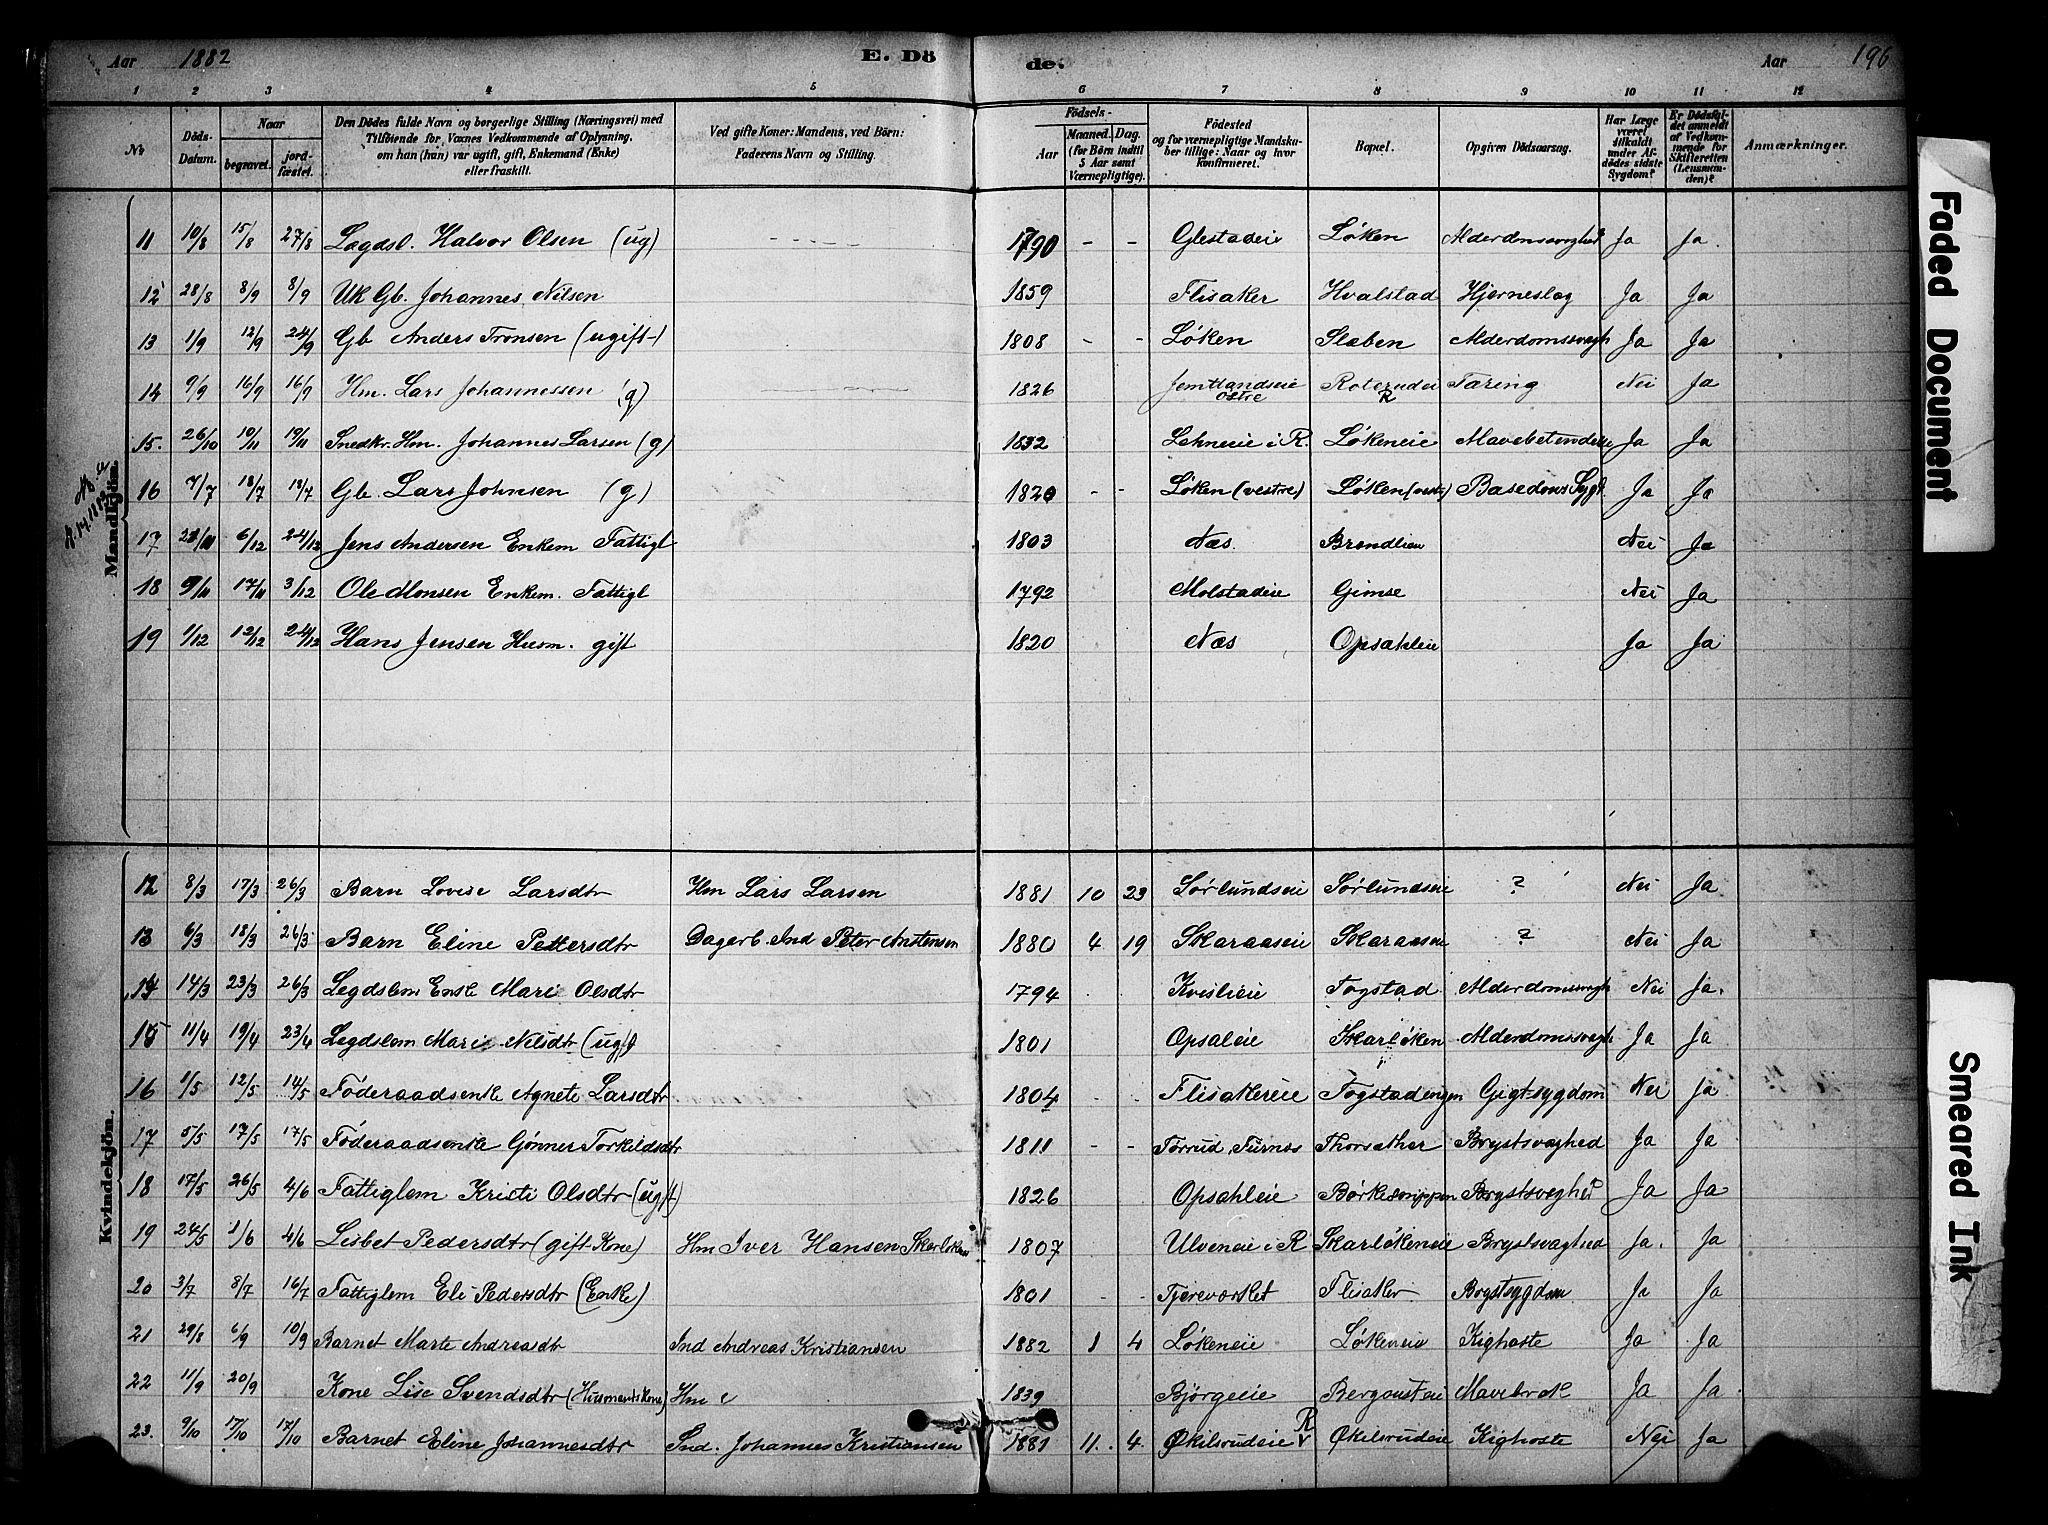 Aar 1882 E. Dö de. Aar 196
1 2 3 4 5 6 7 8 9 10 11 12
No Döds-Datum. Naar begravet. jordfæstet. Den Dödes fulde Navn og borgerlige Stilling (Næringsvei) med Tilföiende for Voxnes Vedkommende af Oplysning, om han (hun) var ugift, gift, Enkemand (Enke) eller fraskilt. Ved gifte Koner: Mandens, ved Börn: Faderens Navn og Stilling. Födsels- Aar Maaned. Dag. (for Börn indtil 5 Aar samt Værnepligtige). Födested og for værnepligtige Mandskuber tillige: Naar og hvor konfirmeret. Bopæl. Opgiven Dödsaarsag. Har Læge været tilkaldt under Afdödes sidste Sygdom? Er Dödsfaldet anmeldt af Vedkommende for Skifteretten (Lensmanden)? Anmærkninger.
Mandkjön.
11 10/8 15/8 27/8 Lægdsl. Halvor Olsen (ug) 1790 - - Glestadeie Løken Alderdomssvaghed Ja Ja.
12 28/8 8/9 8/9 Uk Gb. Johannes Nilsen 1859 Flisaker Hvalstad Hjerneslag Ja Ja
13 1/9 12/9 24/9 Gb Anders Tronsen (ugift) 1808 - - Løken Slæben Alderdomssvagh Ja Ja
14 9/9 16/9 16/9 Hm. Lars Johannessen (g) 1826 Jemtlandseie østre Roterudei R Tæring Nei Ja
15. 26/10 10/11 19/11 Snedkr. Hm. Johannes Larsen (g) 1832 Lehneeie i R. Løkeneie Mavebetendelse Ja Ja
16 7/7 18/7 18/7 Gb. Lars Johnsen (g) 1820 - - Løken (vestre) Løken (vest) Basedows Sygd. Ja Ja
17 6/12 24/12 Jens Andersen Enkem Fattigl 1803 Næs. Brændlien Nei Ja
18 9/11 17/11 3/12 Ole Monsen Enkem. Fattigl 1792 Molstadeie Gimse Nei Ja
19 1/12 12/12 24/12 Hans Jensen Husm. gift 1820 Næs Opsahleie Ja Ja
Kvindekjön.
12 8/3 17/3 26/3 Barn Lovise Larsdtr Hm Lars Larsen 1881 10 23 Sørlundseie Sørlundseie ? Nei Ja
13 6/3 18/3 26/3 Barn Eline Pettersdtr Dagarb. Ind Peter Anstensen 1880 4 19 Skaraaseie Skaraaseie ? Nei Ja
14 14/3 23/3 26/3 Legdslem Enke Mari Olsdtr 1794 Kvislieie Fogstad Alderdomssvagh Nei Ja.
15 11/4 19/4 23/4 Legdslem Mari Nilsdtr (ugft) 1801 Opsaleie Skarløken Alderdomssvagh Ja Ja
16 1/5 12/5 14/5 Føderaadsenke Agnete Larsdtr 1804 - - Flisakereie Fogstadengen Gigtsygdom Nei Ja
17 5/5 17/5 17/5 Føderaadsenke Gønner Torkildsdtr 1811 - - Torrud, Furnes Thorsæther Brystsvaghed Ja Ja
18 17/5 26/5 4/6 Fattiglem Kristi Olsdtr (ugft) 1826 Opsahleie Brystsvaghed Ja Ja
19 24/5 1/6 4/6 Lisbet Pedersdtr (gift Kone) Hm Iver Hansen Skarløken 1807 Ulveneie i R Skarløkeneie Brystsvaghed Ja. Ja
20 3/7 8/7 16/7 Fattiglem Eli Pedersdtr (Enke) 1801 - - Tjereværket Flisaker Brystsygdom Ja Ja
21 29/8 6/9 10/9 Barnet Marte Andreasdtr Ind Andreas Kristiansen 1882 1 4 Løkeneie Løkeneie Kighoste Ja Ja
22 11/9 20/9 Kone Lise Svendsdtr (Husmandskone) Hm 1839 Bjørgeeie Mavebrok Ja Ja
23. 9/10 17/10 17/10 Barnet Eline Johannesdtr Ind. Johannes Kristiansen 1881 11. 4. Økilsrudeie R Økilsrudeie Kighoste Nei Ja
Faded Document
Smeared Ink